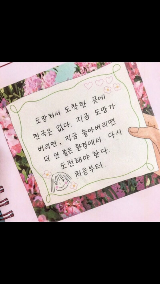 도망쳐서 도착한 곳에
천국은 없다. 지금 도망가
버리면, 지금 돌아버리면
더 안 좋은 환경에서 다시
도전해야 한다.
처음부터.